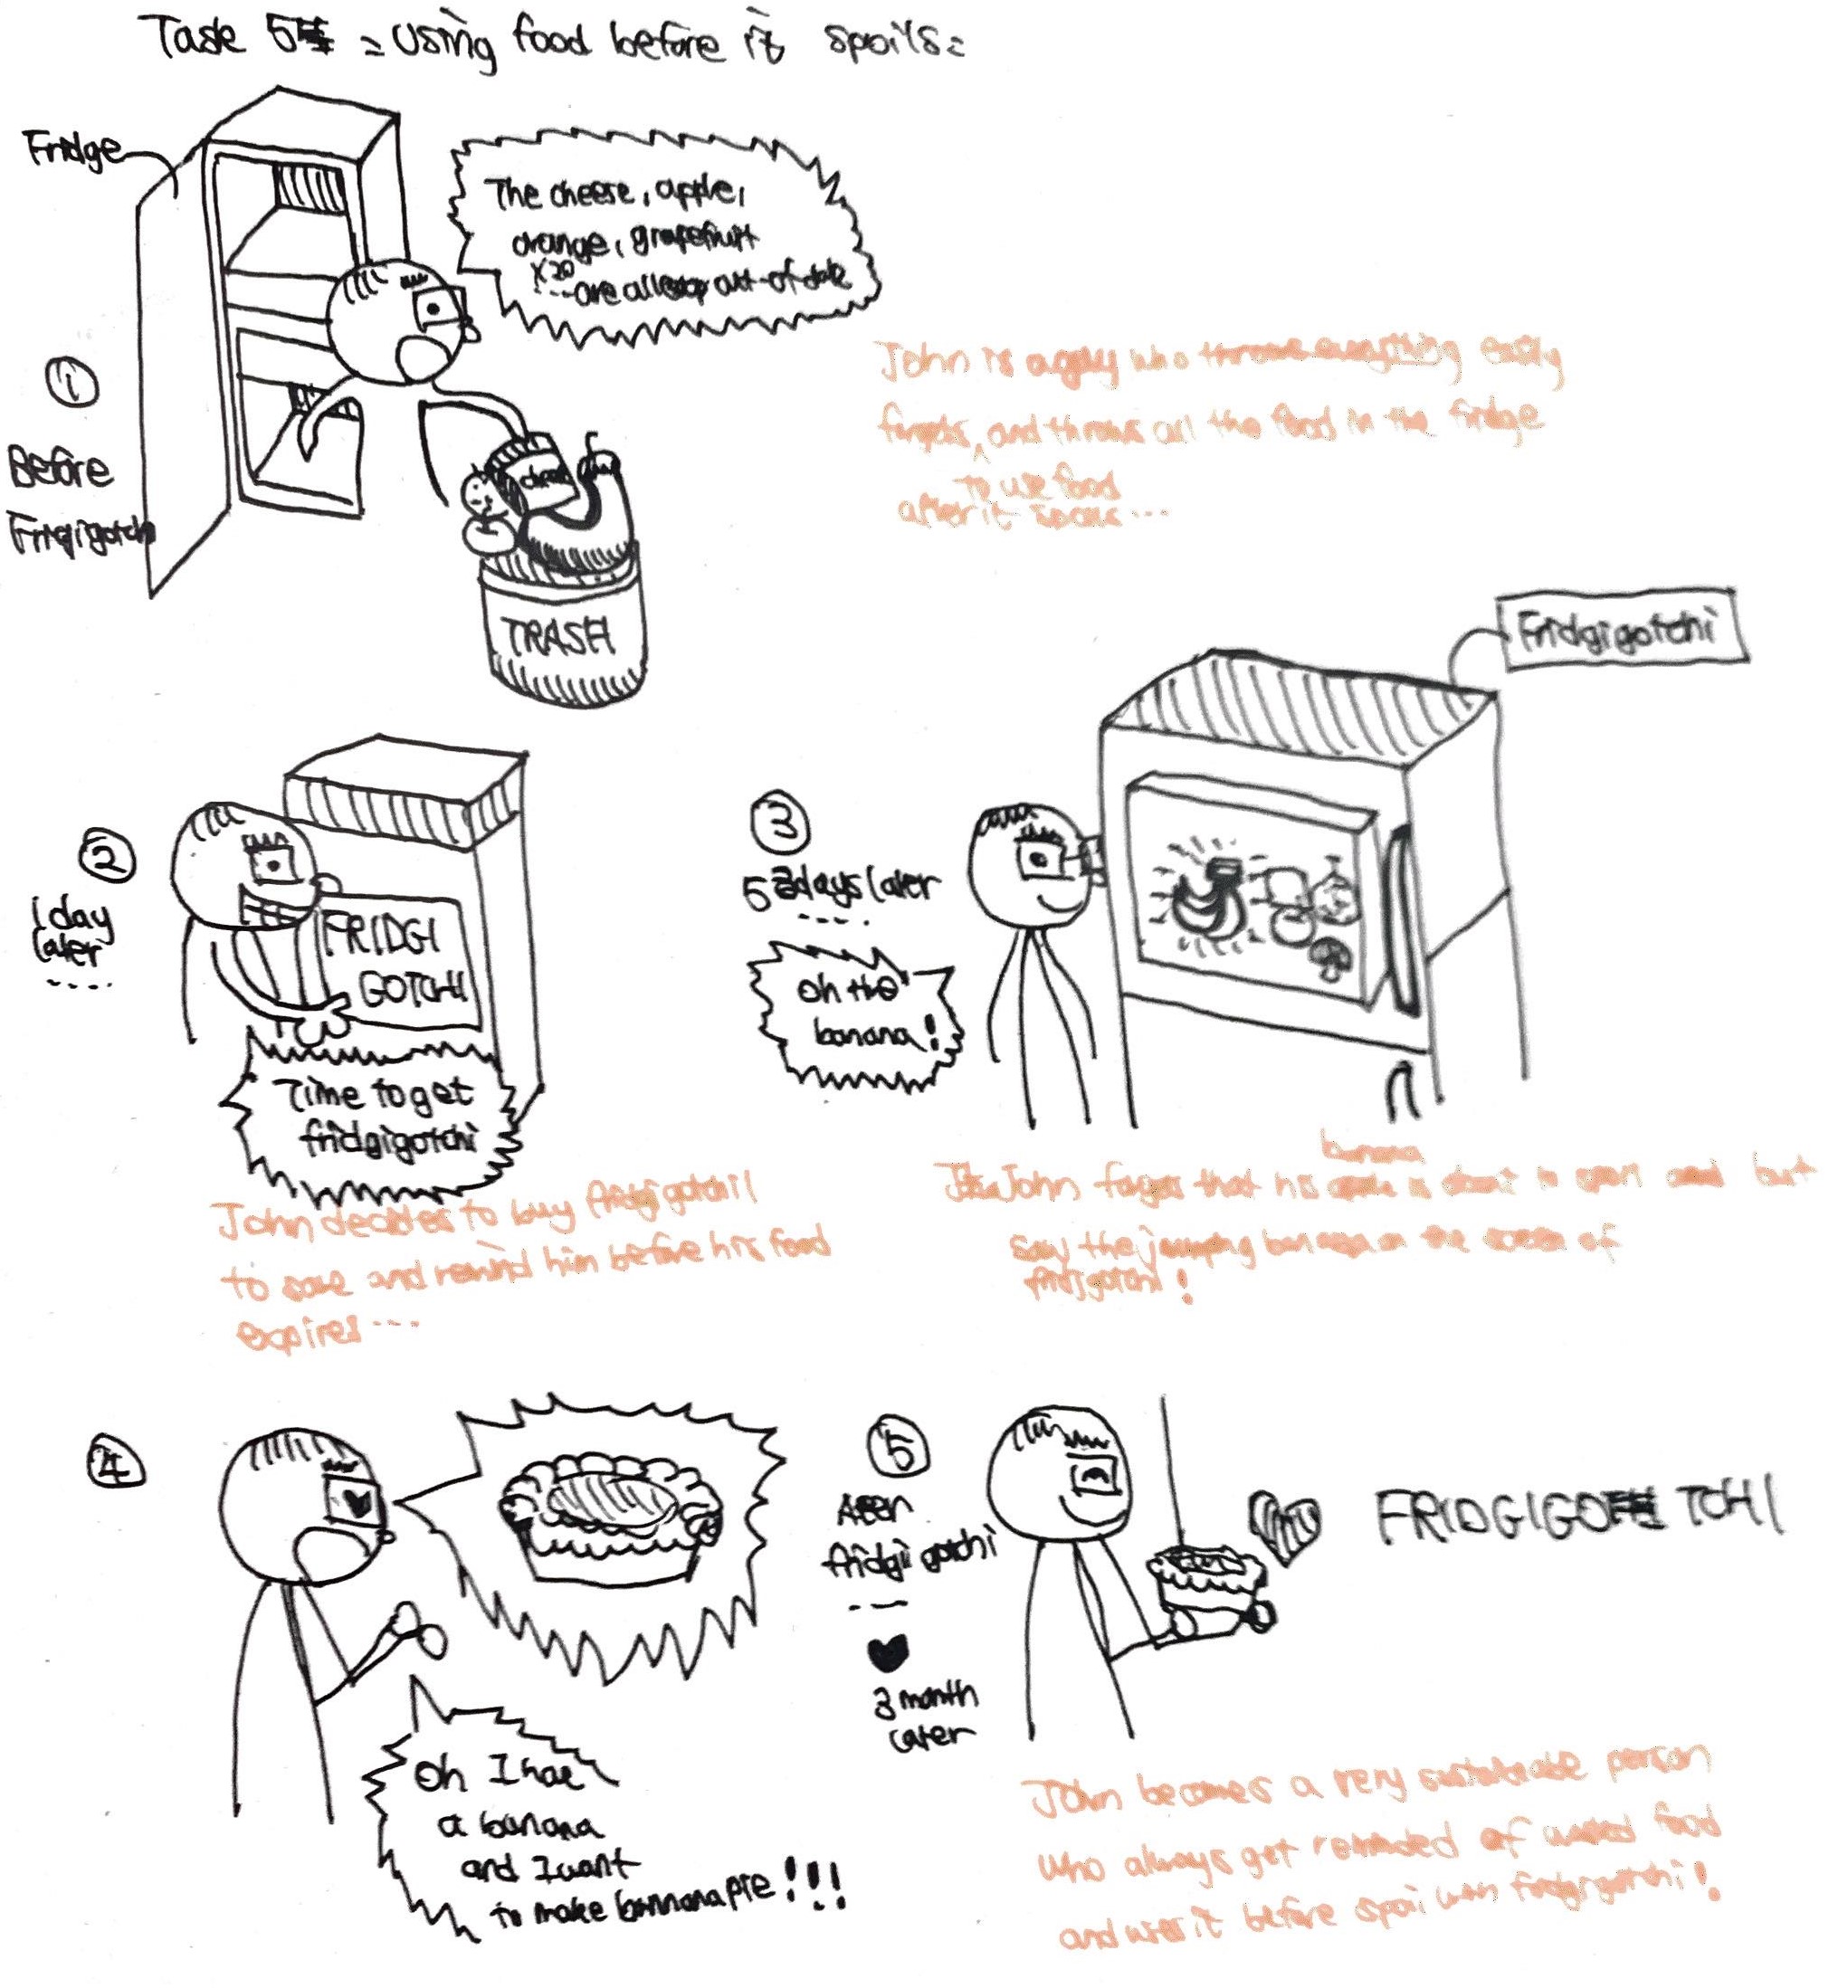 Task 5 = Using food before it spoils =
Fridge
The cheese, apple,
orange, grapefruit
x20
... are all out-of-date
1
Before
Fridgigotchi
cheese
TRASH
John is a guy who throws everything easily
forgets, and throws all the food in the fridge
to use food
after it spoils ...
Fridgigotchi
2
1 day
later
....
FRIDGI
GOTCHI
Time to get
fridgigotchi
John decides to buy fridgigotchi
to save and remind him before his food
expires ...
3
5 days later
....
Oh the
banana!
banana
John forgot that his is about to but
saw the jumping banana on the screen of
fridgigotchi!
4
Oh I have
a banana
and I want
to make bannana pie!!!
5
After
fridgigotchi
---
3 month
later
FRIDGIGOTCHI
John becomes a very sustainable person
who always get reminded of food
and uses it before spoil with fridgigotchi!